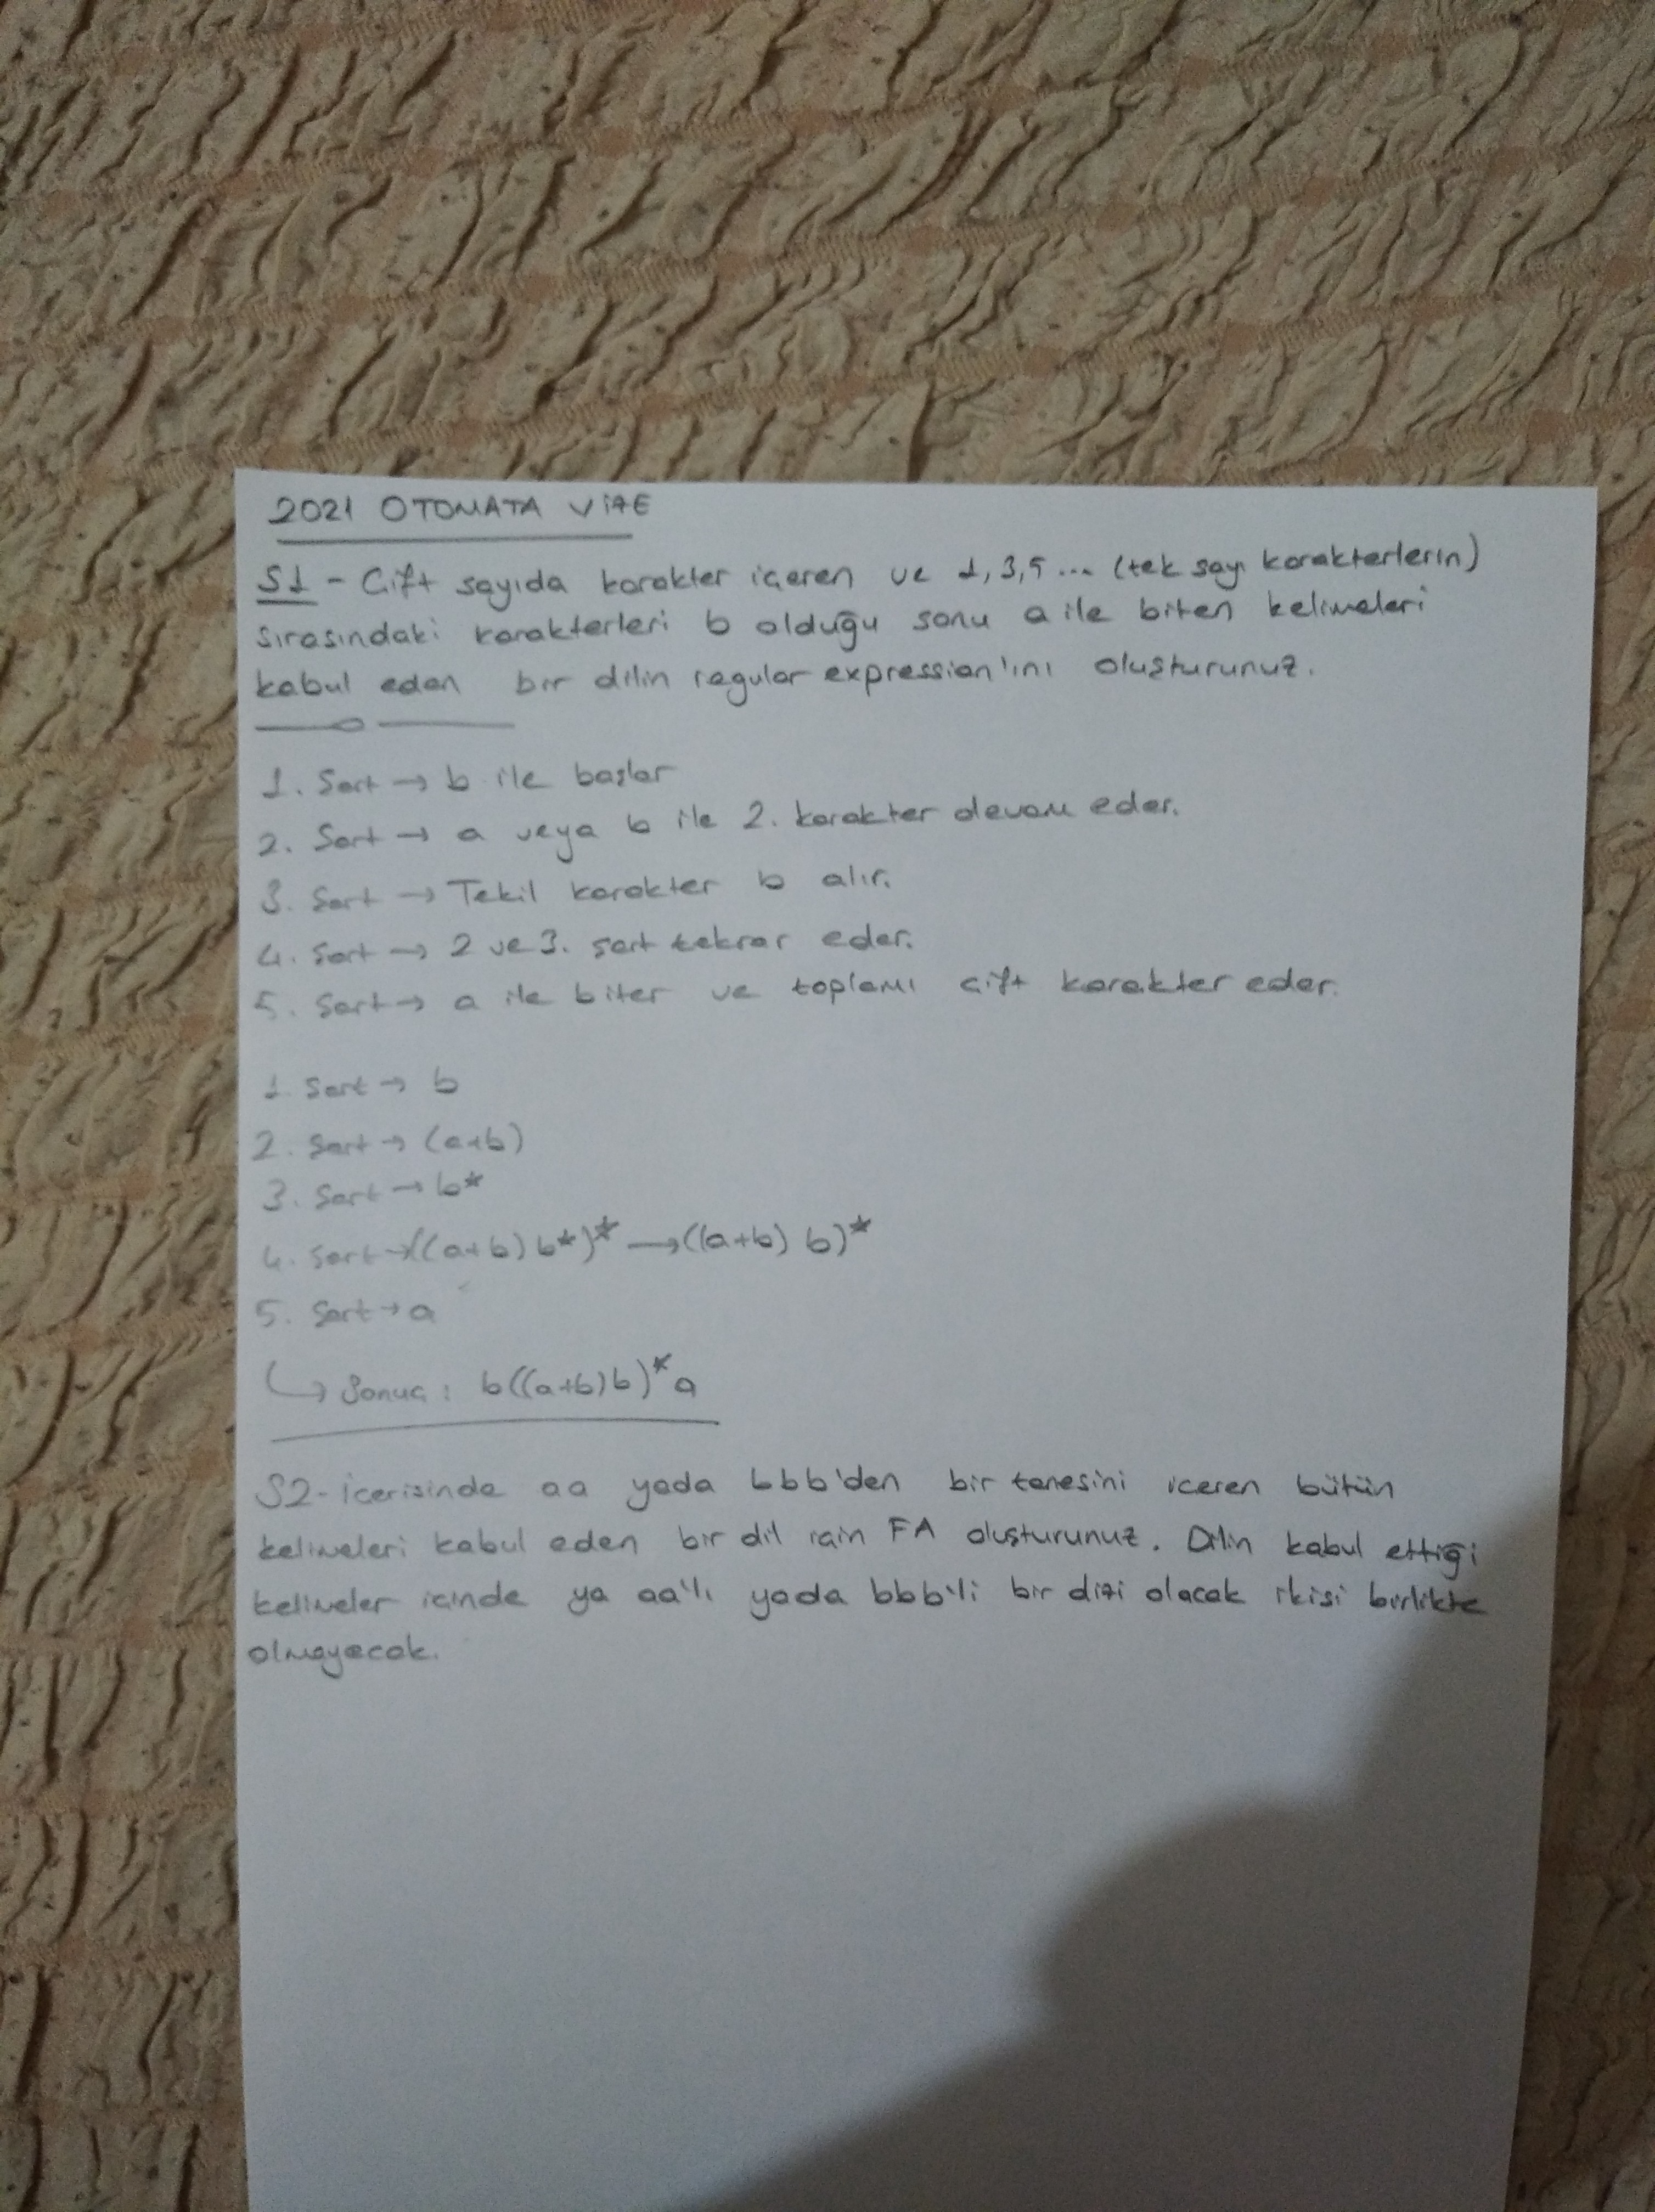 2021 OTOMATA VİZE
S1 - Çift sayıda karakter içeren ve 1, 3, 5 ... (tek sayı karakterlerin)
sırasındaki karakterleri b olduğu sonu a ile biten kelimeleri
kabul eden bir dilin regular expression'ını oluşturunuz.
1. Şart → b ile başlar
2. Şart → a veya b ile 2. karakter devam eder.
3. Şart → Tekil karakter b alır.
4. Şart → 2 ve 3. şart tekrar eder.
5. Şart → a ile biter ve toplamı çift karakter eder.
1. Şart → b
2. Şart → (a+b)
3. Şart → b*
4. Şart → ((a+b) b*)* → ((a+b) b)*
5. Şart → a
↳ Sonuç : b((a+b)b)* a
S2- İçerisinde aa yada bbb'den bir tanesini içeren bütün
kelimeleri kabul eden bir dil için FA oluşturunuz. Dilin kabul ettiği
kelimeler içinde ya aa'lı yada bbb'li bir dizi olacak ikisi birlikte
olmayacak.